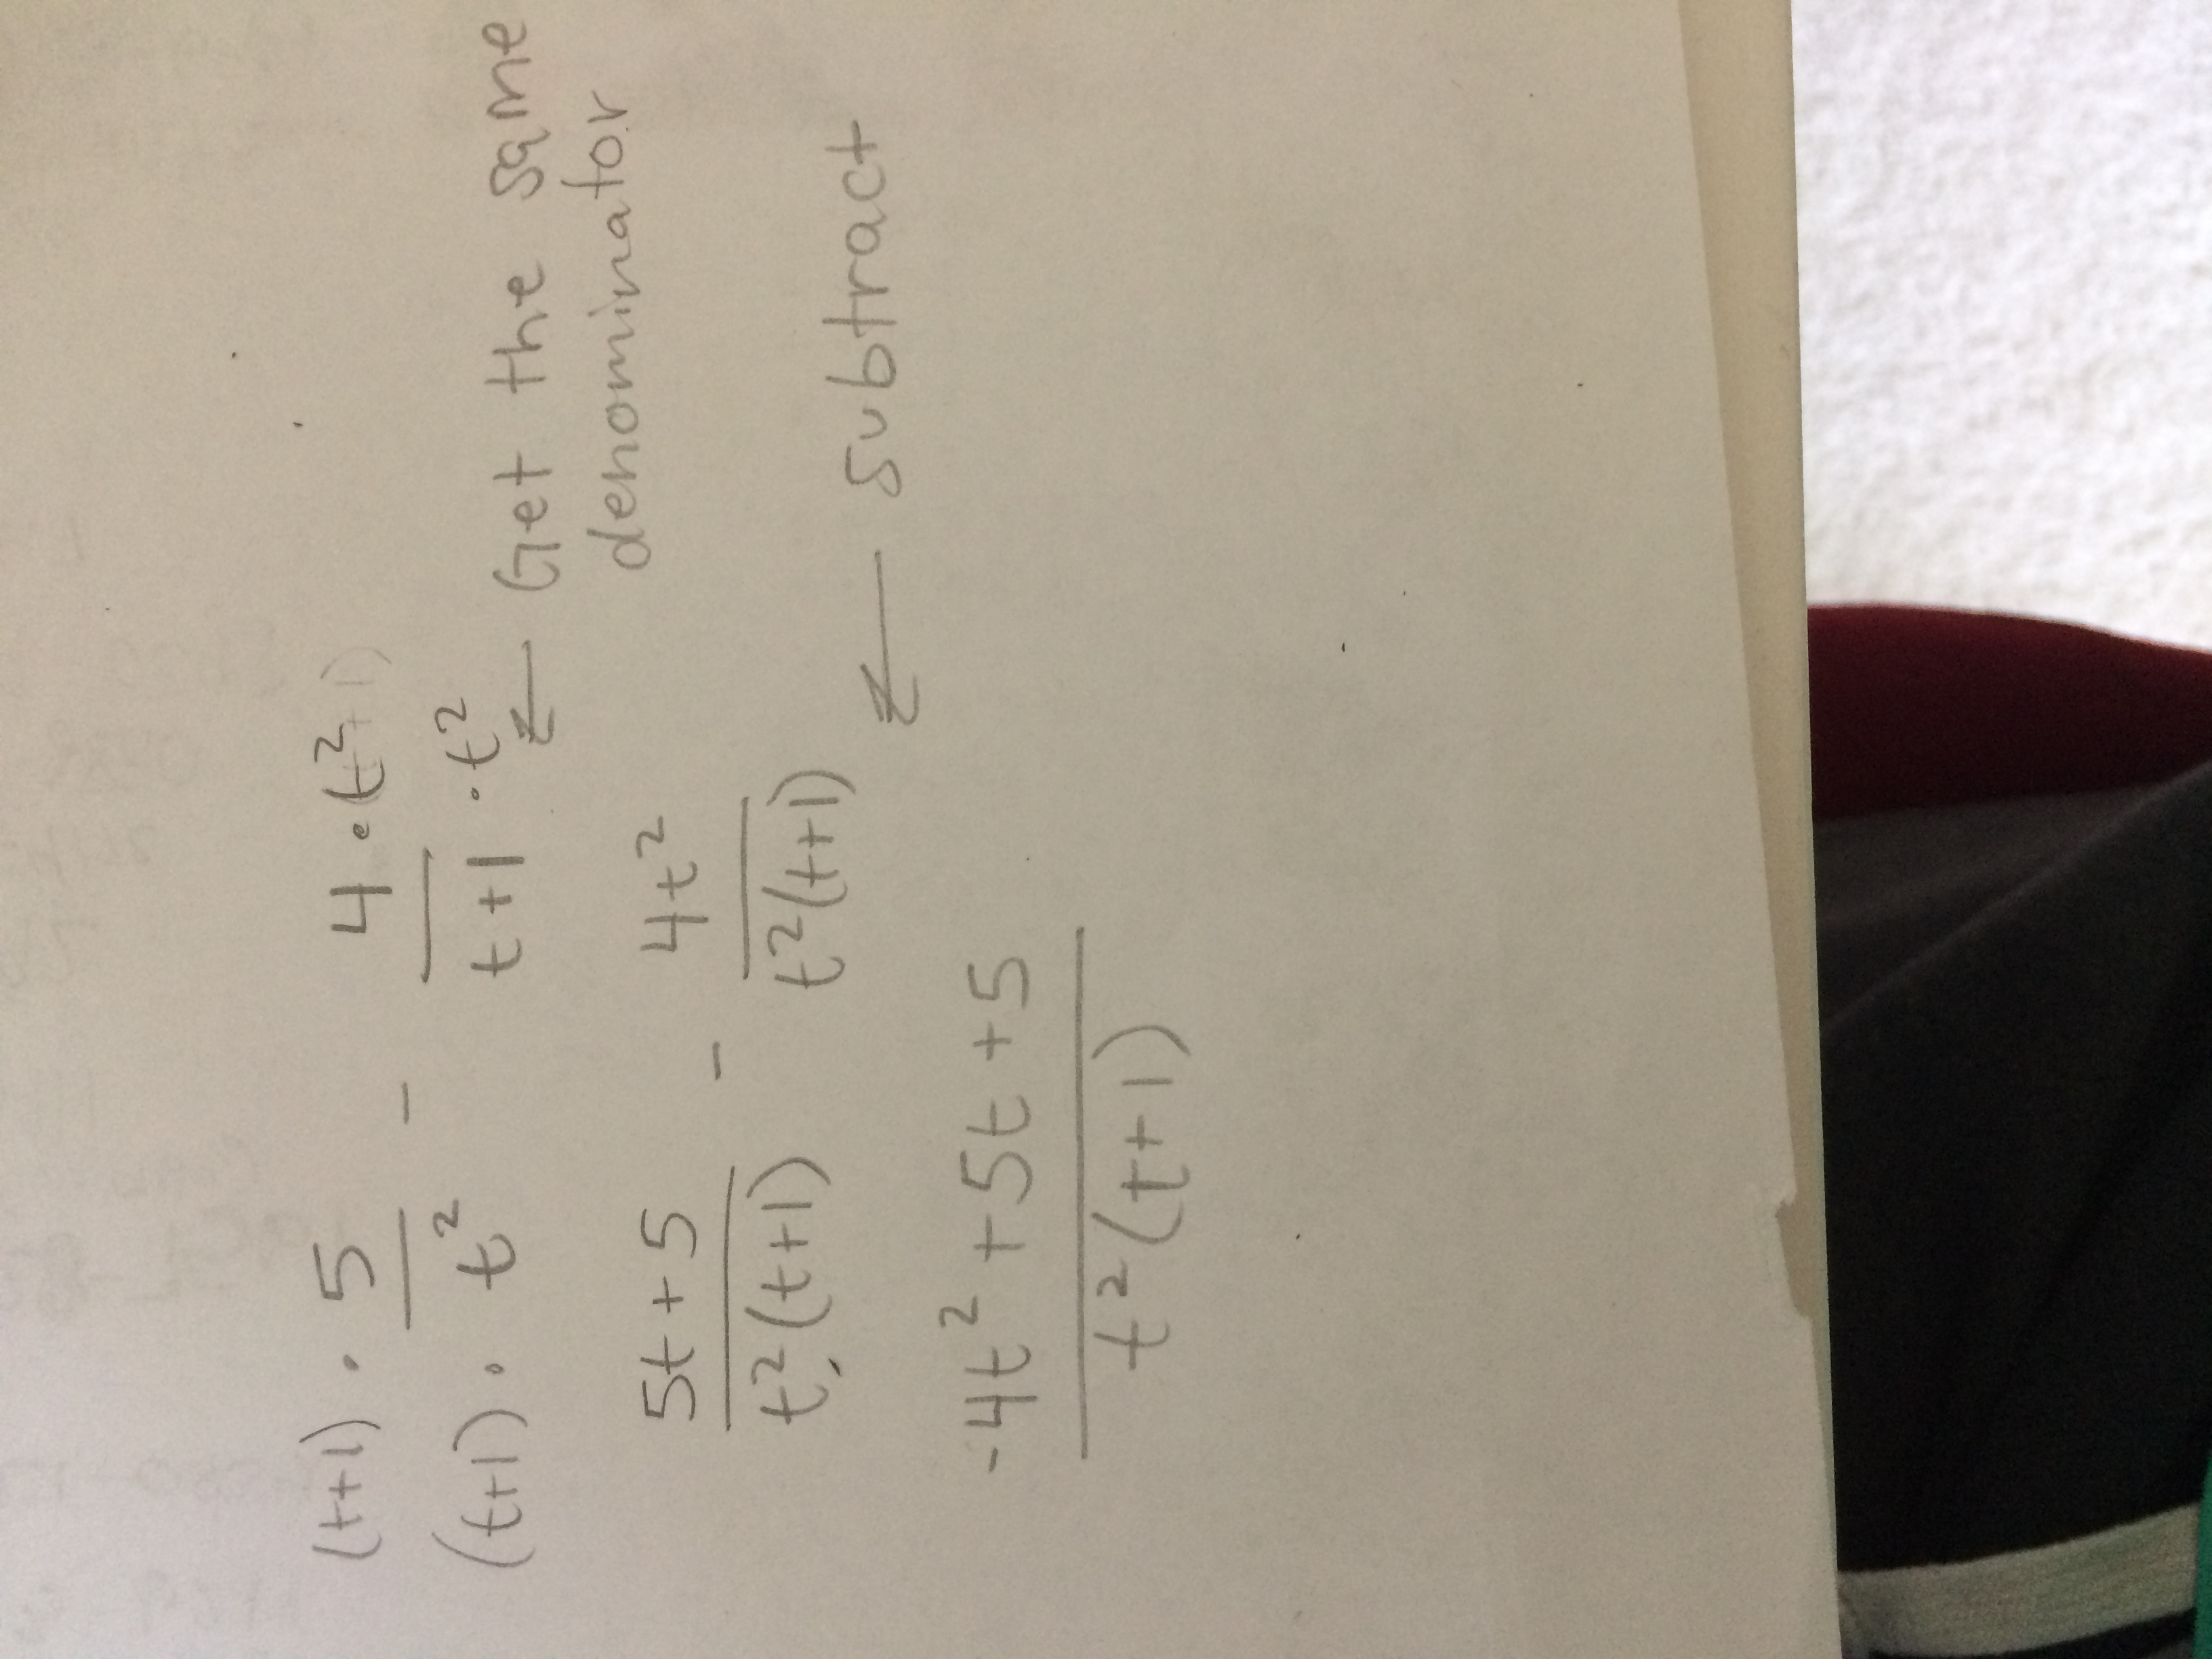 (t+1) · 5 / t² · (t+1) − 4 · (t²+1) / t+1 · t²
← Get the same
denominator
5t+5 / t²(t+1) − 4t² / t²(t+1)
← subtract
-4t² + 5t + 5 / t²(t+1)